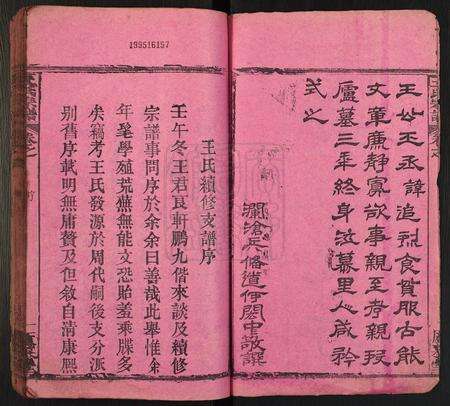 王公王丞諱追烈食貧服古能
文章廉靜寡欲事親至孝親歿
廬墓三年終身泣慕里人咸矜
式之
瀾滄兵備道伊闕中敬譔
199516157
王氏續修支譜序
壬午冬王君艮軒鵬九偕來談及續修
宗譜事問序於余余曰善哉此舉惟余
年髦學殖荒蕪無能文恐貽羞乘牒多
矣竊考王氏發源於周代嗣後支分派
別舊序載明無庸贅及但敘自清康熙